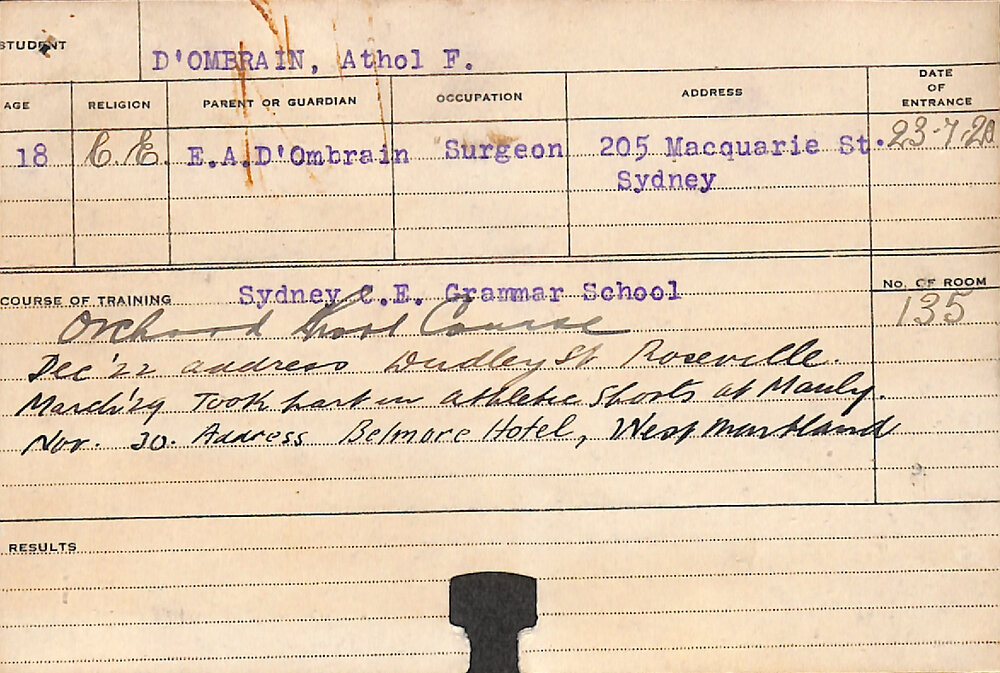 STUDENT
D'OMBRAIN, Athol F.
AGE RELIGION PARENT OR GUARDIAN OCCUPATION ADDRESS DATE OF ENTRANCE
18 C.E. E.A.D'Ombrain Surgeon 205 Macquarie St. 23-7-20
Sydney
COURSE OF TRAINING Sydney C.E. Grammar School No. OF ROOM
Orchard Course 135
Dec '22 address Dudley St Roseville.
March '29 Took part in athletic Sports at Manly.
Nov. 30. Address Belmore Hotel, West Maitland
RESULTS